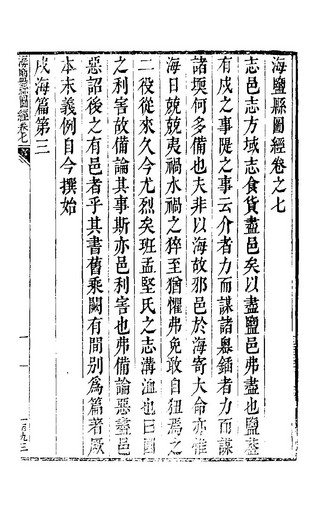 海鹽縣圖經卷之七
志邑志方域志食貨盡邑矣以盡鹽邑弗盡也鹽蓋
有戍之事隄之事云介者力而謀諸纍鍤者力而謀
諸堧何多備也夫非以海故邪邑於海寄大命亦惟
海日兢兢夷禍水禍之猝至猶懼弗免敢自狃焉之
二役從來久今尤烈矣班孟堅氏之志溝洫也曰國
之利害故備論其事斯亦邑利害也弗備論惡盡邑
惡詔後之有邑者乎其書舊乘闕有間別爲篇著厥
本末義例自今撰始
戍海篇第三
海鹽縣圖經卷七
一